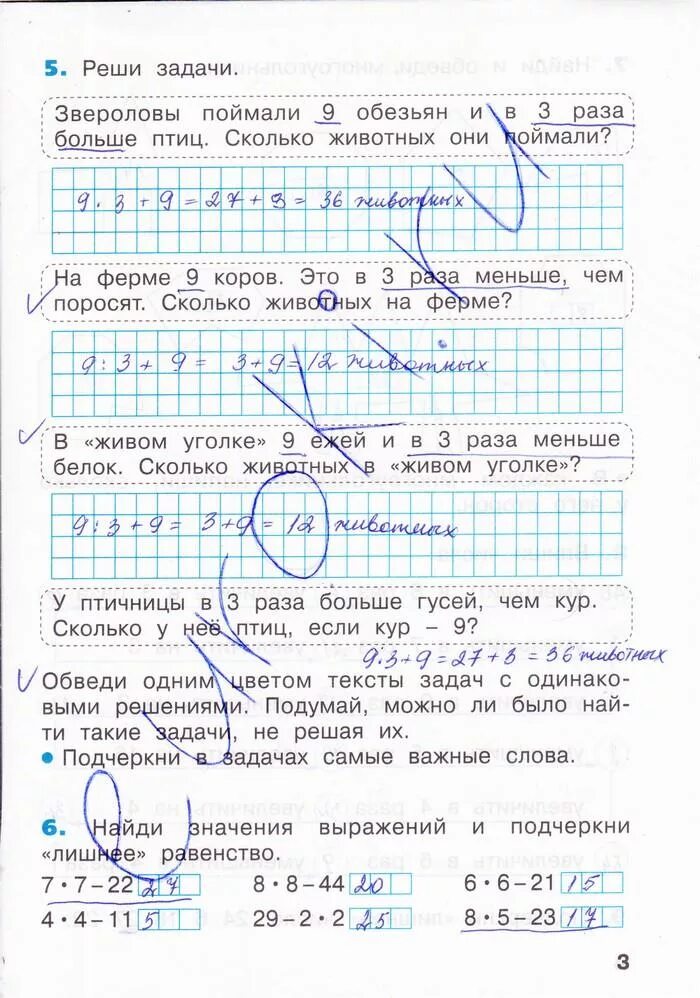 5. Реши задачи.
Звероловы поймали 9 обезьян и в 3 раза
больше птиц. Сколько животных они поймали?
9 · 3 + 9 = 27 + 9 = 36 животных
На ферме 9 коров. Это в 3 раза меньше, чем
поросят. Сколько животных на ферме?
9 : 3 + 9 = 3+9=12 животных
В «живом уголке» 9 ежей и в 3 раза меньше
белок. Сколько животных в «живом уголке»?
9 : 3 + 9 = 3+9 = 12 животных
У птичницы в 3 раза больше гусей, чем кур.
Сколько у неё птиц, если кур – 9?
9·3+9=27+3=36 животных
Обведи одним цветом тексты задач с одинако-
выми решениями. Подумай, можно ли было най-
ти такие задачи, не решая их.
• Подчеркни в задачах самые важные слова.
6. Найди значения выражений и подчеркни
«лишнее» равенство.
7 · 7 – 22 27 8 · 8 – 44 20 6 · 6 – 21 15
4 · 4 – 11 5 29 – 2 · 2 25 8 · 5 – 23 17
3